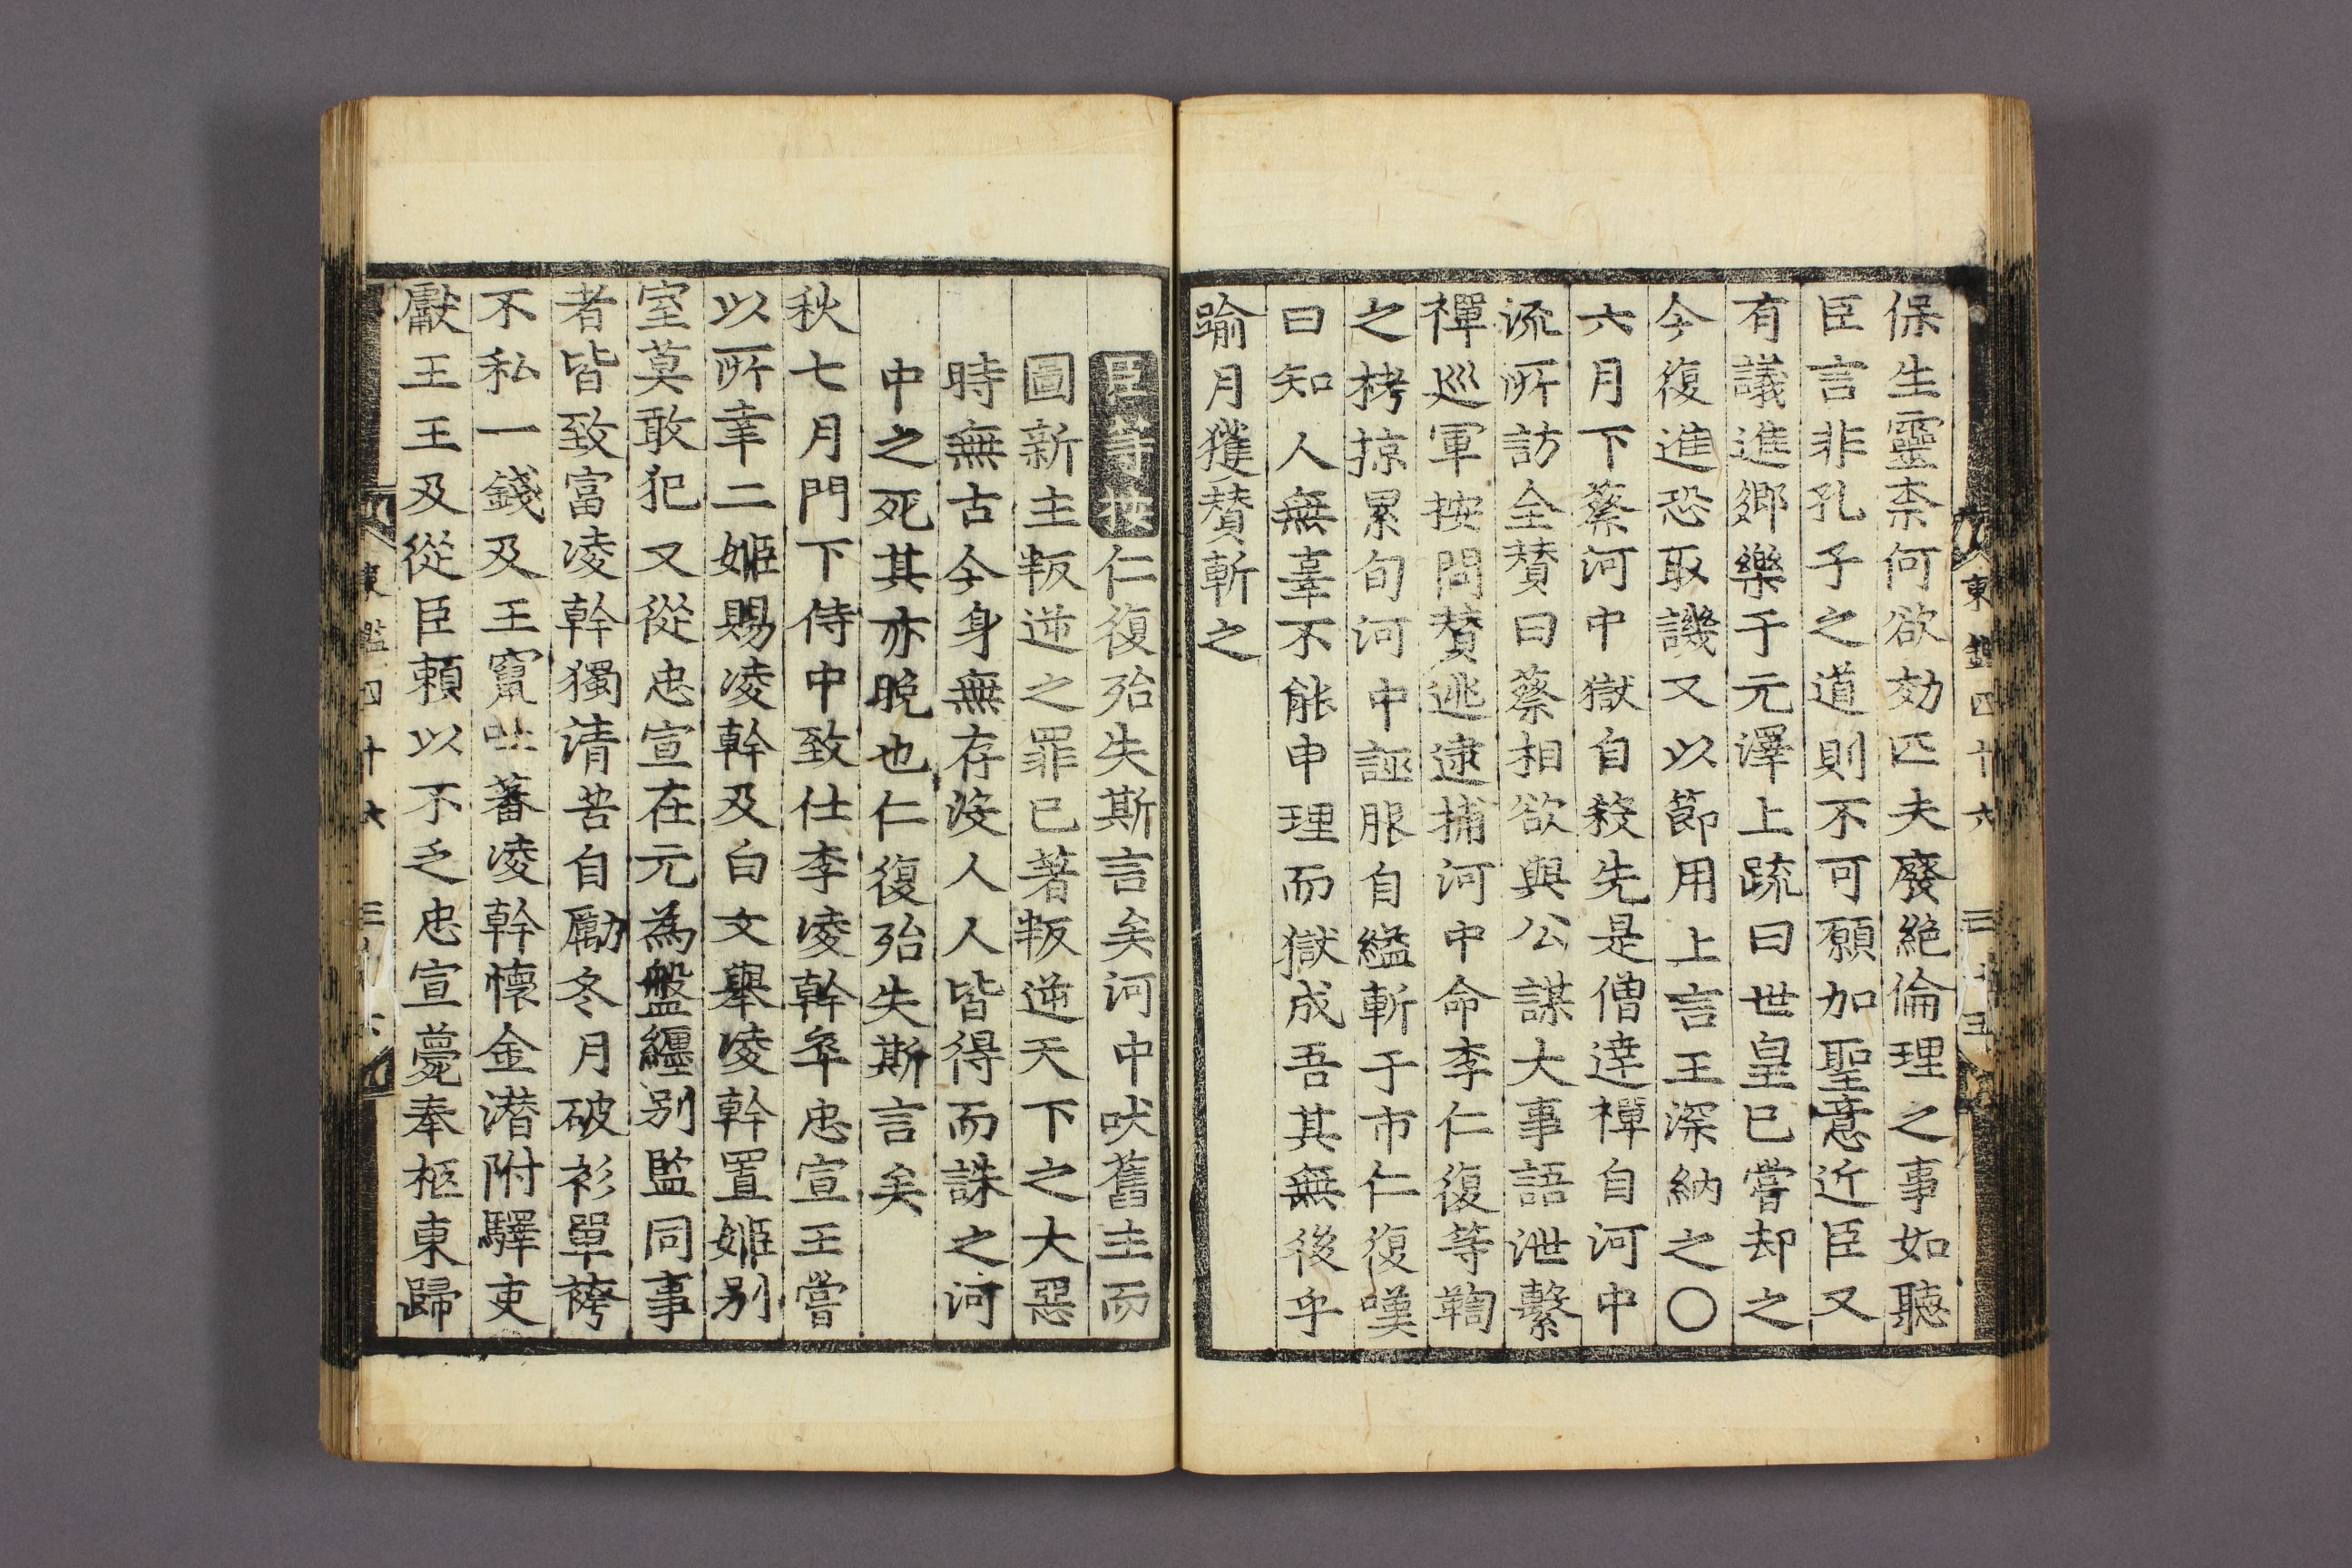 東鑑四十六
保生靈柰何欲効匹夫廢絶倫理之事如聽
臣言非孔子之道則不可願加聖意近臣又
有議進鄉樂于元澤上疏曰世皇已嘗却之
今復進恐取譏又以節用上言王深納之〇
六月下蔡河中獄自殺先是僧達禪自河中
流所訪全賛曰蔡相欲與公謀大事語泄繫
禪巡軍按問賛逃逮捕河中命李仁復等鞫
之栲掠累旬河中誣服自縊斬于市仁復嘆
曰知人無辜不能申理而獄成吾其無後乎
踰月獲賛斬之
臣等按仁復殆失斯言矣河中吠舊主而
圖新主叛逆之罪已著叛逆天下之大惡
時無古今身無存沒人人皆得而誅之河
中之死其亦晚也仁復殆失斯言矣
秋七月門下侍中致仕李凌幹卒忠宣王嘗
以所幸二姬賜凌幹及白文舉凌幹置姬別
室莫敢犯又從忠宣在元為盤纏別監同事
者皆致富凌幹獨清苦自勵冬月破衫單袴
不私一錢及王竄吐蕃凌幹懷金潛附驛吏
獻王王及從臣頼以不乏忠宣薨奉柩東歸
東鑑四十六